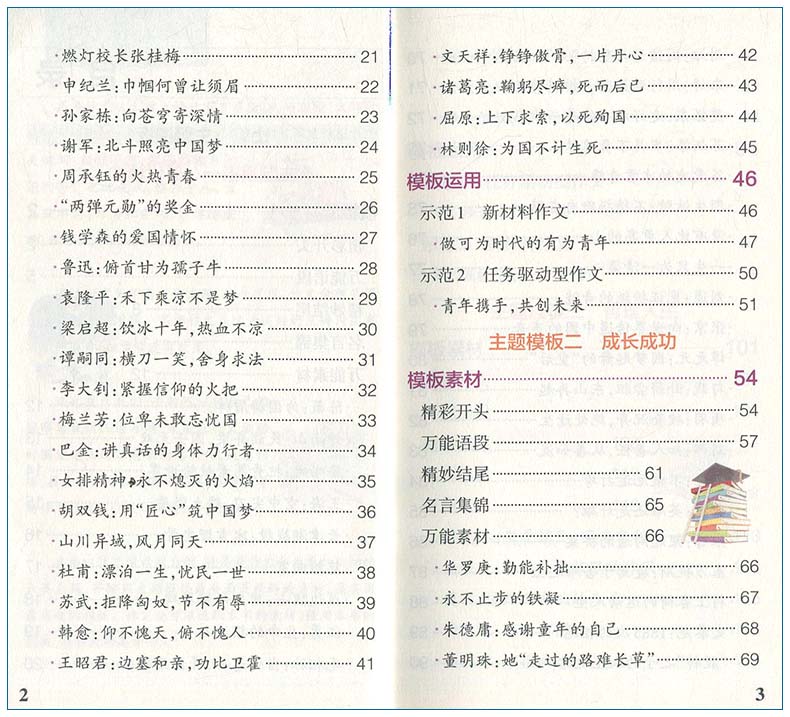 ·燃灯校长张桂梅 21
·申纪兰:巾帼何曾让须眉 22
·孙家栋:向苍穹寄深情 23
·谢军:北斗照亮中国梦 24
·周承钰的火热青春 25
·“两弹元勋”的奖金 26
·钱学森的爱国情怀 27
·鲁迅:俯首甘为孺子牛 28
·袁隆平:禾下乘凉不是梦 29
·梁启超:饮冰十年,热血不凉 30
·谭嗣同:横刀一笑,舍身求法 31
·李大钊:紧握信仰的火把 32
·梅兰芳:位卑未敢忘忧国 33
·巴金:讲真话的身体力行者 34
·女排精神 永不熄灭的火焰 35
·胡双钱:用“匠心”筑中国梦 36
·山川异域,风月同天 37
·杜甫:漂泊一生,忧民一世 38
·苏武:拒降匈奴,节不有辱 39
·韩愈:仰不愧天,俯不愧人 40
·王昭君:边塞和亲,功比卫霍 41
2
·文天祥:铮铮傲骨,一片丹心 42
·诸葛亮:鞠躬尽瘁,死而后已 43
·屈原:上下求索,以死殉国 44
·林则徐:为国不计生死 45
模板运用 46
示范1 新材料作文 46
·做可为时代的有为青年 47
示范2 任务驱动型作文 50
·青年携手,共创未来 51
主题模板二 成长成功
模板素材 54
精彩开头 54
万能语段 57
精妙结尾 61
名言集锦 65
万能素材 66
·华罗庚:勤能补拙 66
·永不止步的铁凝 67
·朱德庸:感谢童年的自己 68
·董明珠:她“走过的路难长草” 69
3